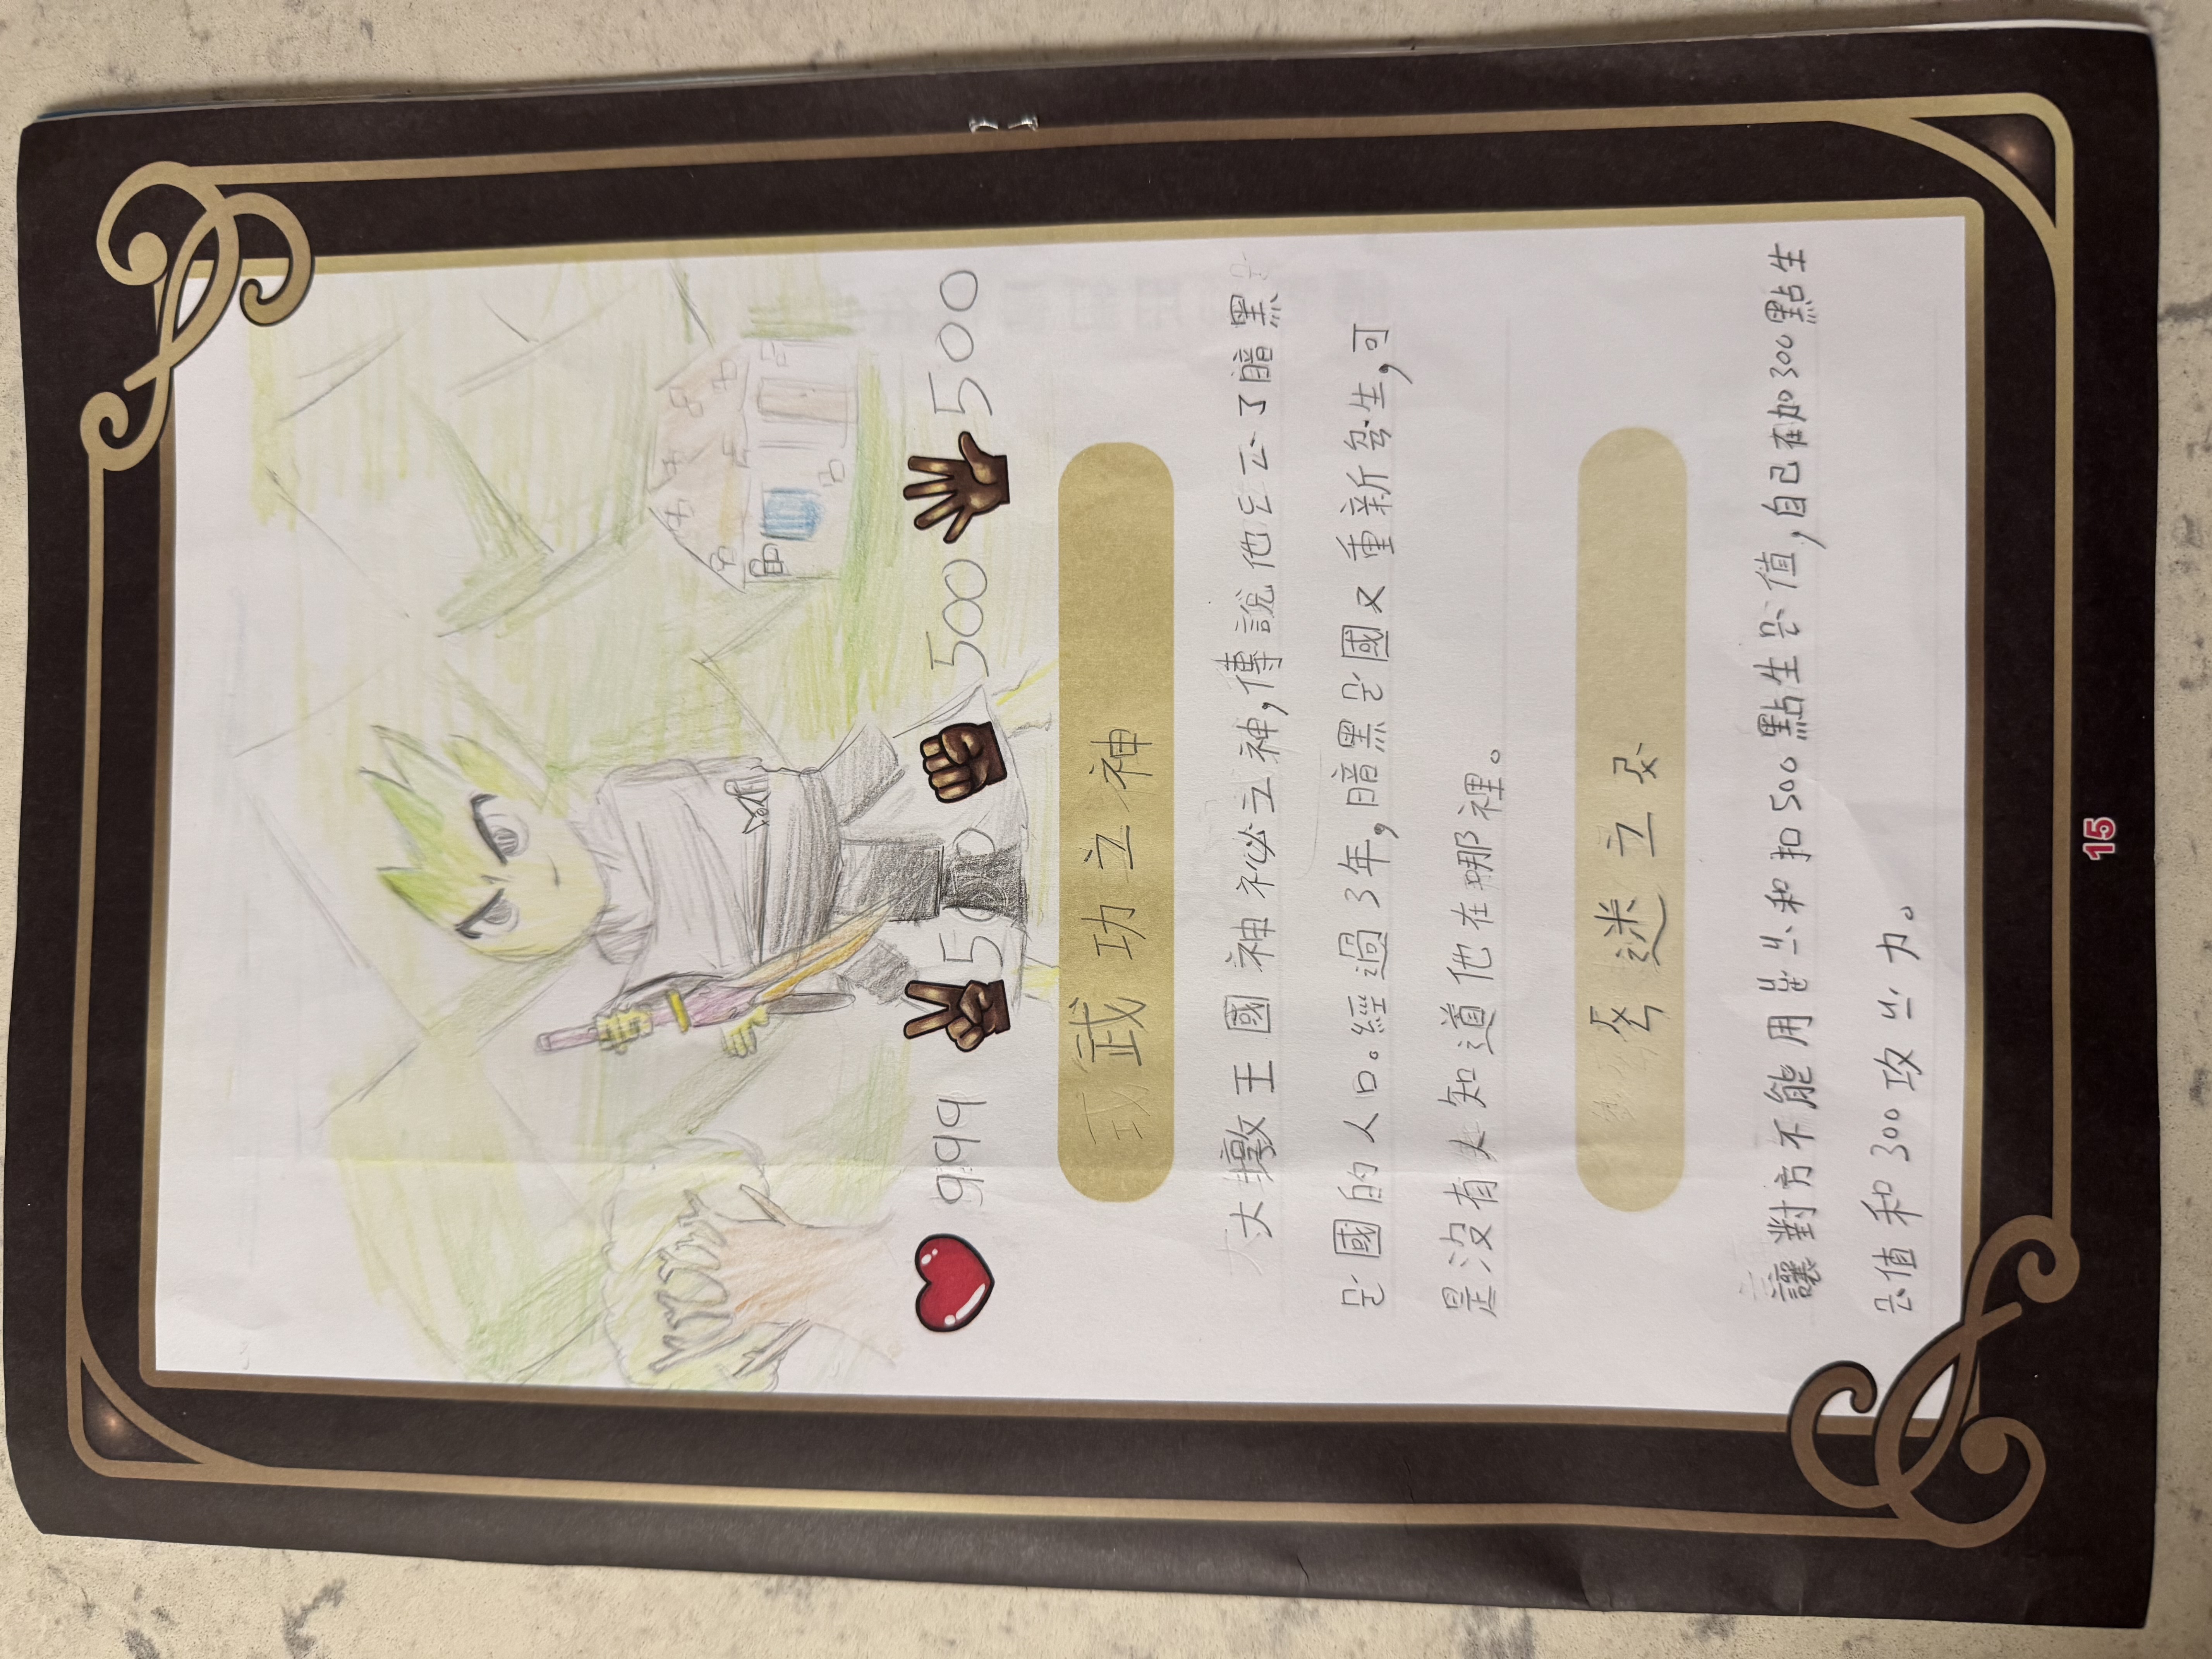 999 500 500 500
武功立神
大墩王國神祕立神,傳說他了暗黑
國的人口。經過3年,暗黑國又重新生,可
是沒有人知道他在哪裡。
迷立
讓對方不能用和扣500點生值,自己加300點生
值和300攻ㄐㄧ力。
15